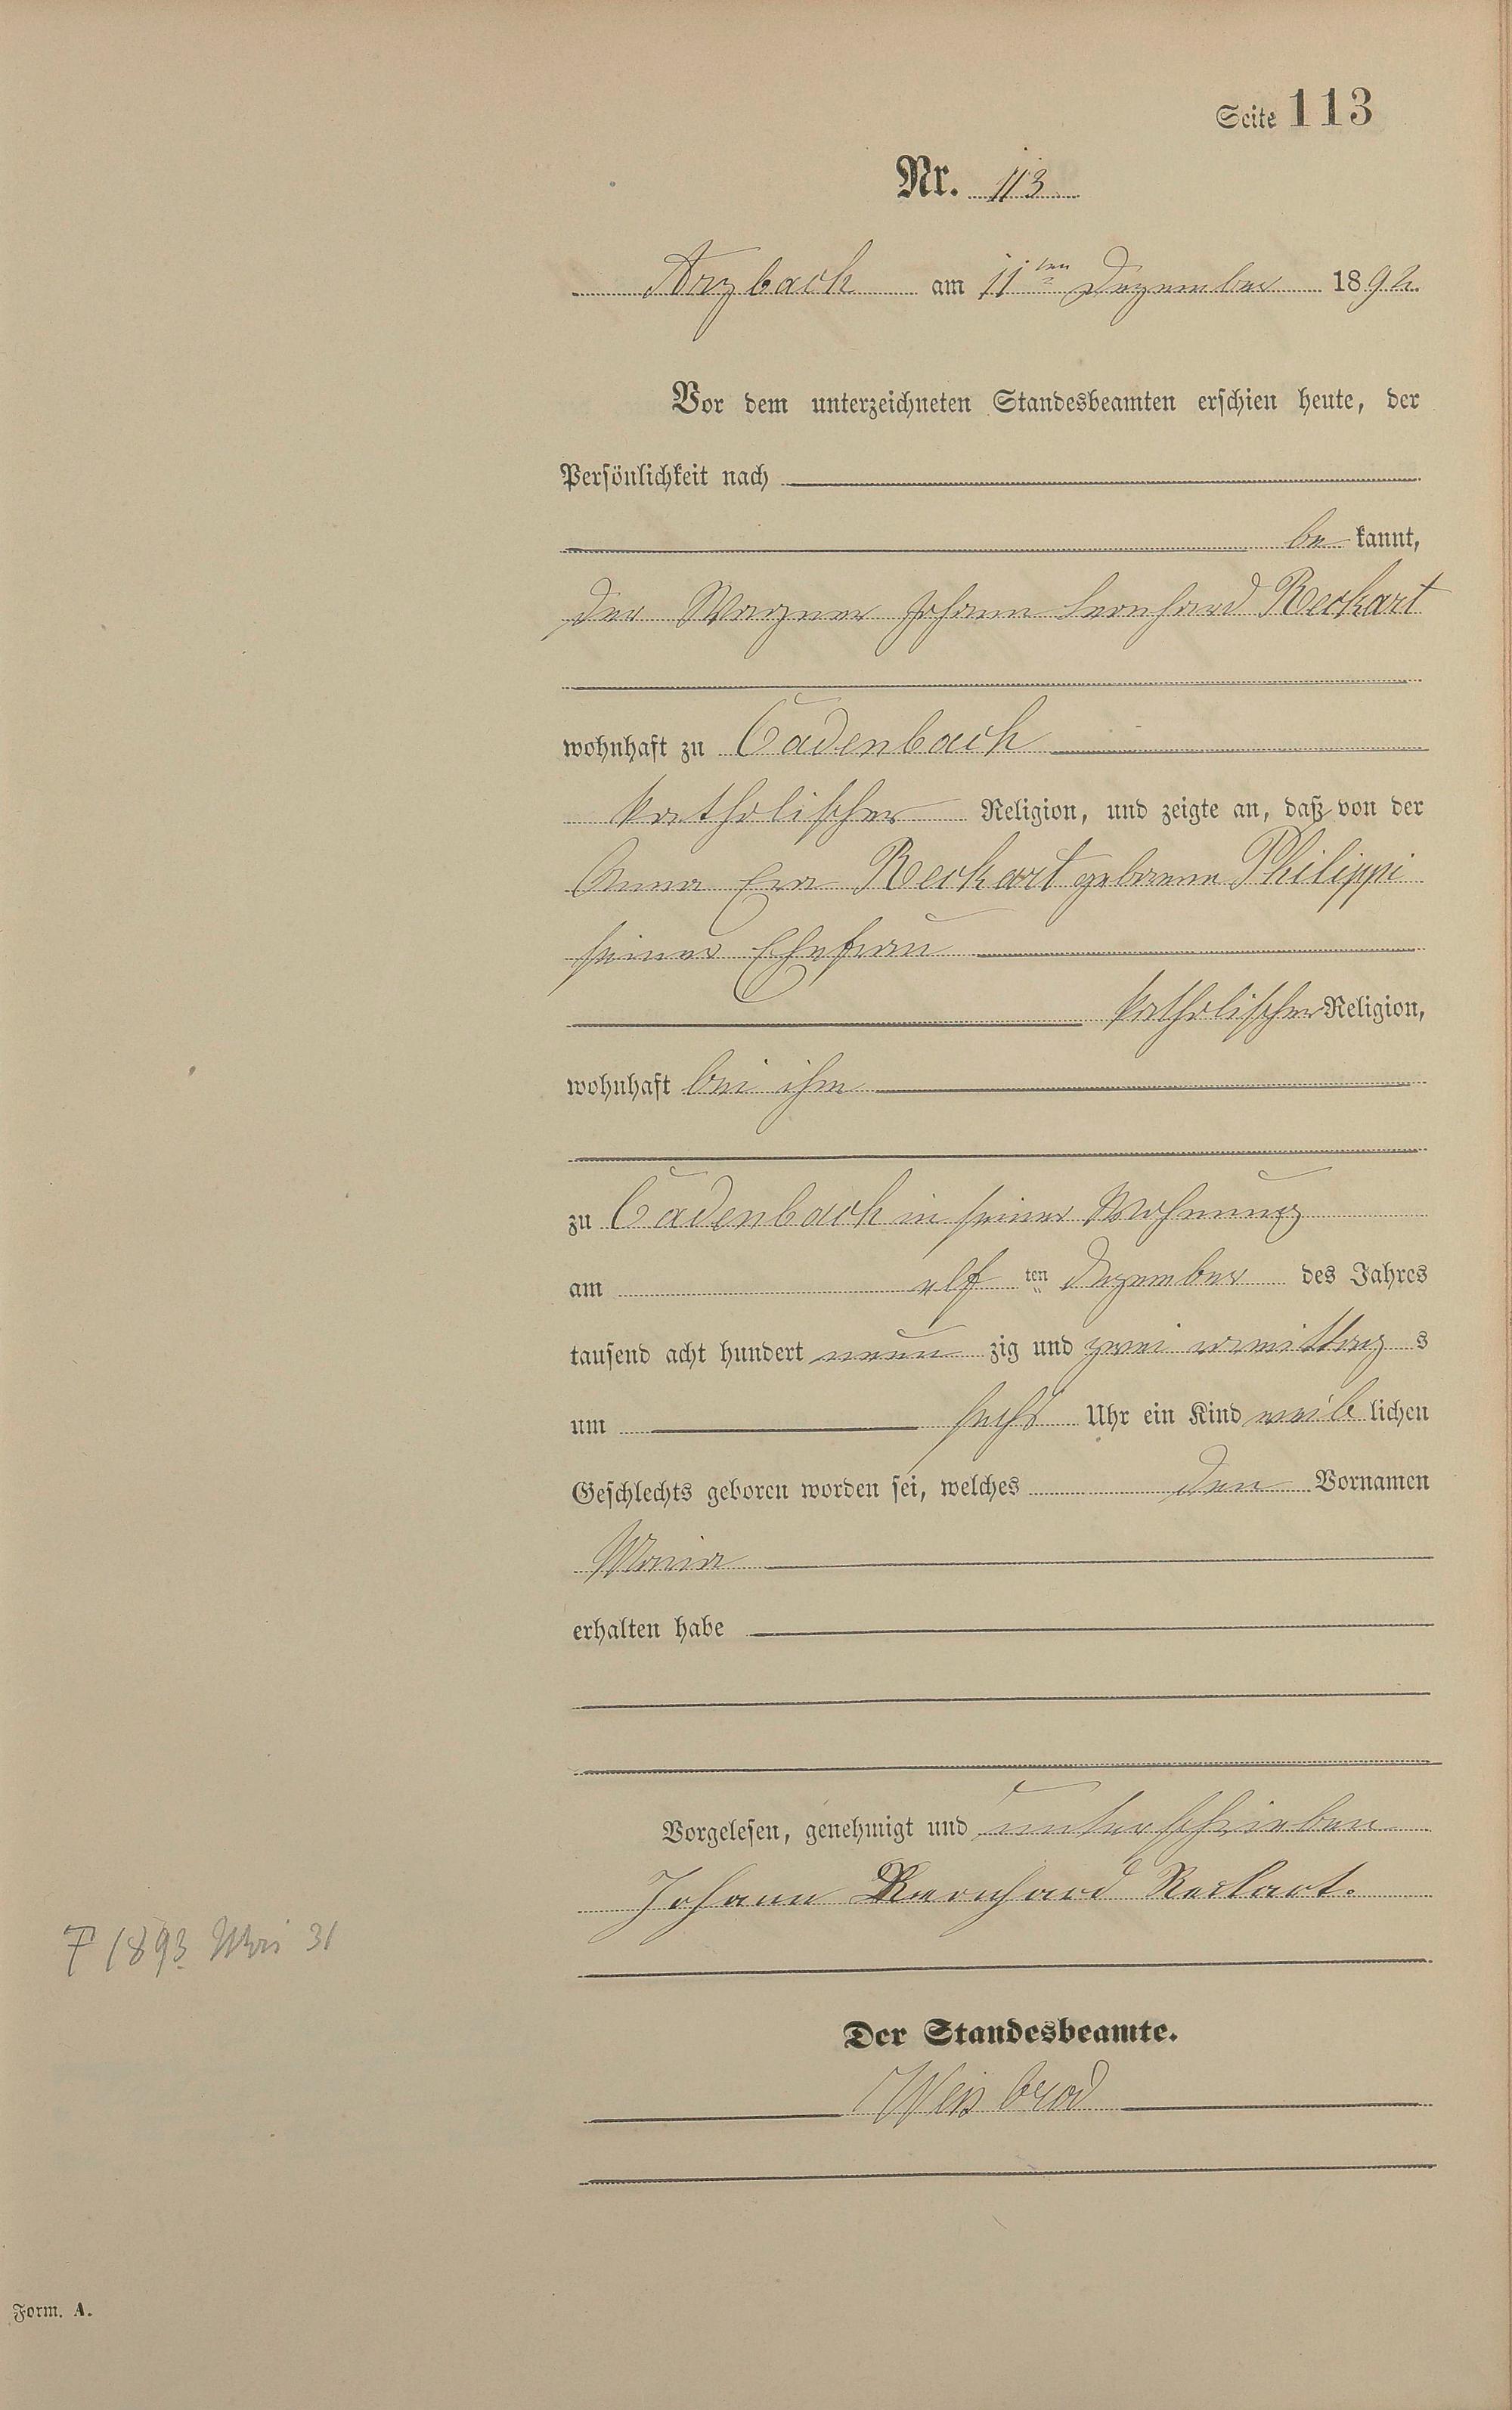 Seite 113
Nr. 113
Arzbach am 11ten Dezember 1892
Vor dem unterzeichneten Standesbeamten erschien heute, der
Persönlichkeit nach
be kannt,
der Wagner Johann Leonhard Reckart
wohnhaft zu Cadenbach
katholischer Religion, und zeigte an, daß von der
Anna Eva Reckart geborene Philippi
seiner Ehefrau
katholischer Religion,
wohnhaft bei ihm
zu Cadenbach in seiner Wohnung
am elf ten Dezember des Jahres
tausend acht hundert neun zig und zwei vormittag s
um sechs Uhr ein Kind weib lichen
Geschlechts geboren worden sei, welches den Vornamen
Maria
erhalten habe
Vorgelesen, genehmigt und unterschrieben
Johann Leonhard Reckart.
† 1893 Mai 31
Der Standesbeamte.
Weisbrod
Form. A.